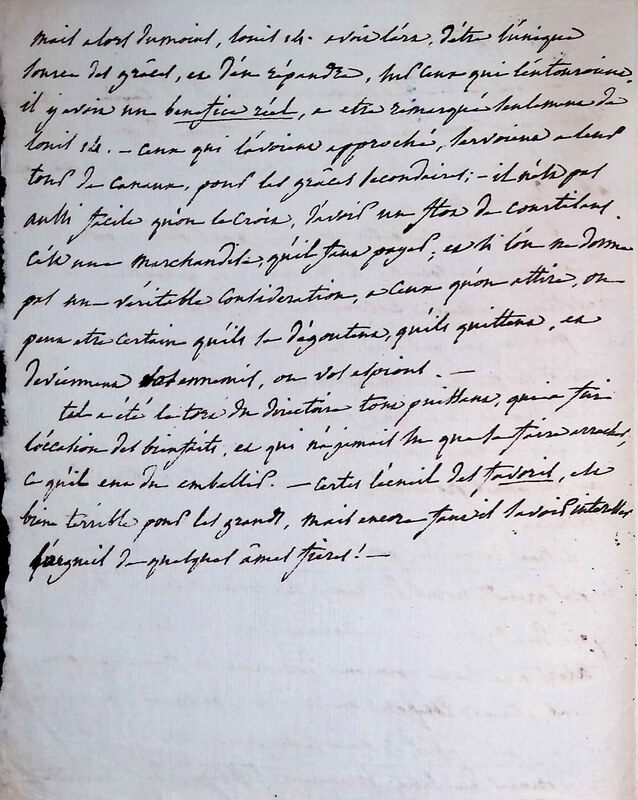 mais alors du moins, louis 14. avoit l'art, d'être l'unique
source des grâces, et d'en répandre, sur ceux qui l'entouroient,
il y avoit un benefice réel, a etre remarqué seulement de
louis 14. - ceux qui l'avoient approché, servoient a leur
tour de canaux, pour les grâces secondaires; - il n'est pas
aussi facile qu'on le croit, d'avoir un flot de courtisans.
c'est une marchandise, qu'il faut payer; et si l'on ne donne
pas une véritable consideration, a ceux qu'on attire, on
peut etre certain qu'ils se dégoutent, qu'ils quittent, et
deviennent vos ennemis, ou vos espions. -
tel a été le tort du directoire tout puissant, qui a fui
l'occasion des bienfaits, et qui n'a jamais su que se faire arracher,
ce qu'il eut du embellir. - certes l'écueil des favoris, est
bien terrible pour les grands, mais encore faut il savoir interesser
l'orgueil de quelques âmes fières! -